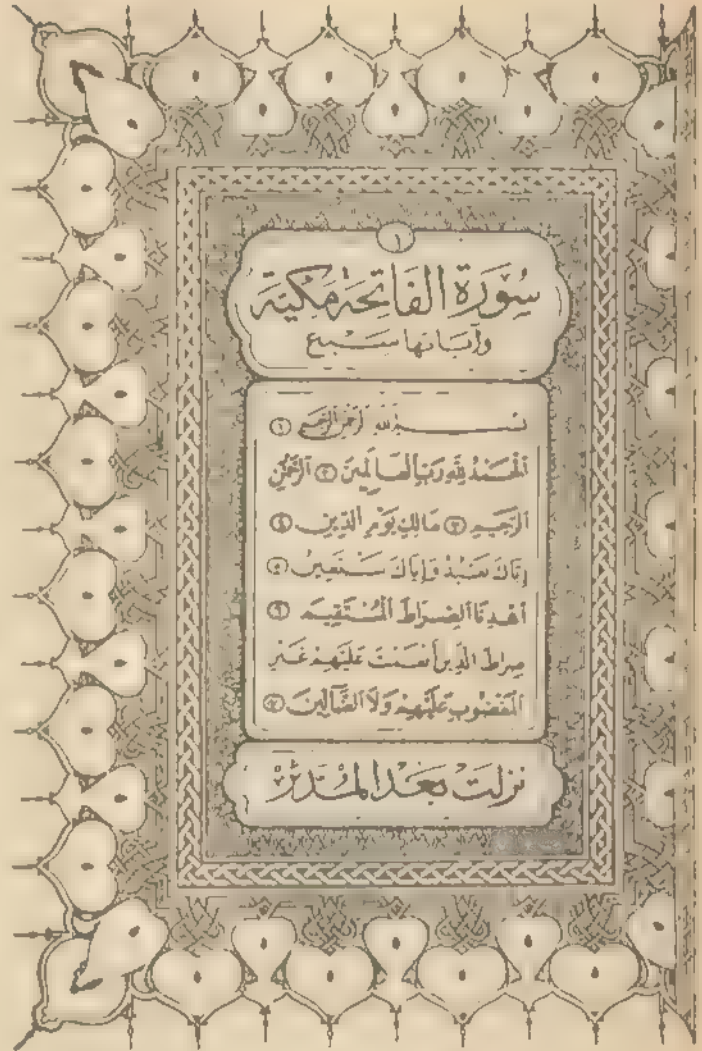 ١
سُورَة الفَاتِحَة مَكيَّة
وَآيَاتها سَبع
بِسْمِ اللهِ الرَّحْمٰنِ الرَّحِيمِ ١
الْحَمْدُ لِلَّهِ رَبِّ الْعَالَمِينَ ٢ الرَّحْمٰنِ
الرَّحِيمِ ٣ مَالِكِ يَوْمِ الدِّينِ ٤
إِيَّاكَ نَعْبُدُ وَإِيَّاكَ نَسْتَعِينُ ٥
اهْدِنَا الصِّرَاطَ الْمُسْتَقِيمَ ٦
صِرَاطَ الَّذِينَ أَنْعَمْتَ عَلَيْهِمْ غَيْرِ
الْمَغْضُوبِ عَلَيْهِمْ وَلَا الضَّالِّينَ ٧
نزلَت بَعْد المُدَّثِّر